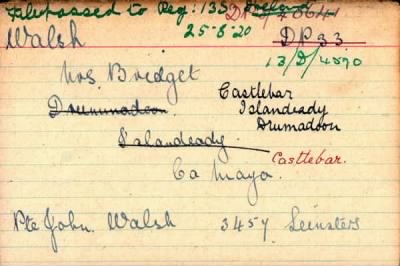 File passed to Reg: 135 Ireland
25-8-20
Walsh
DP 33
13/D/4570
Mrs. Bridget
Castlebar
Drummadoon
Islandeady
Drumadoon
Islandeady
Castlebar.
Co Mayo.
Pte John. Walsh 3457 Leinsters